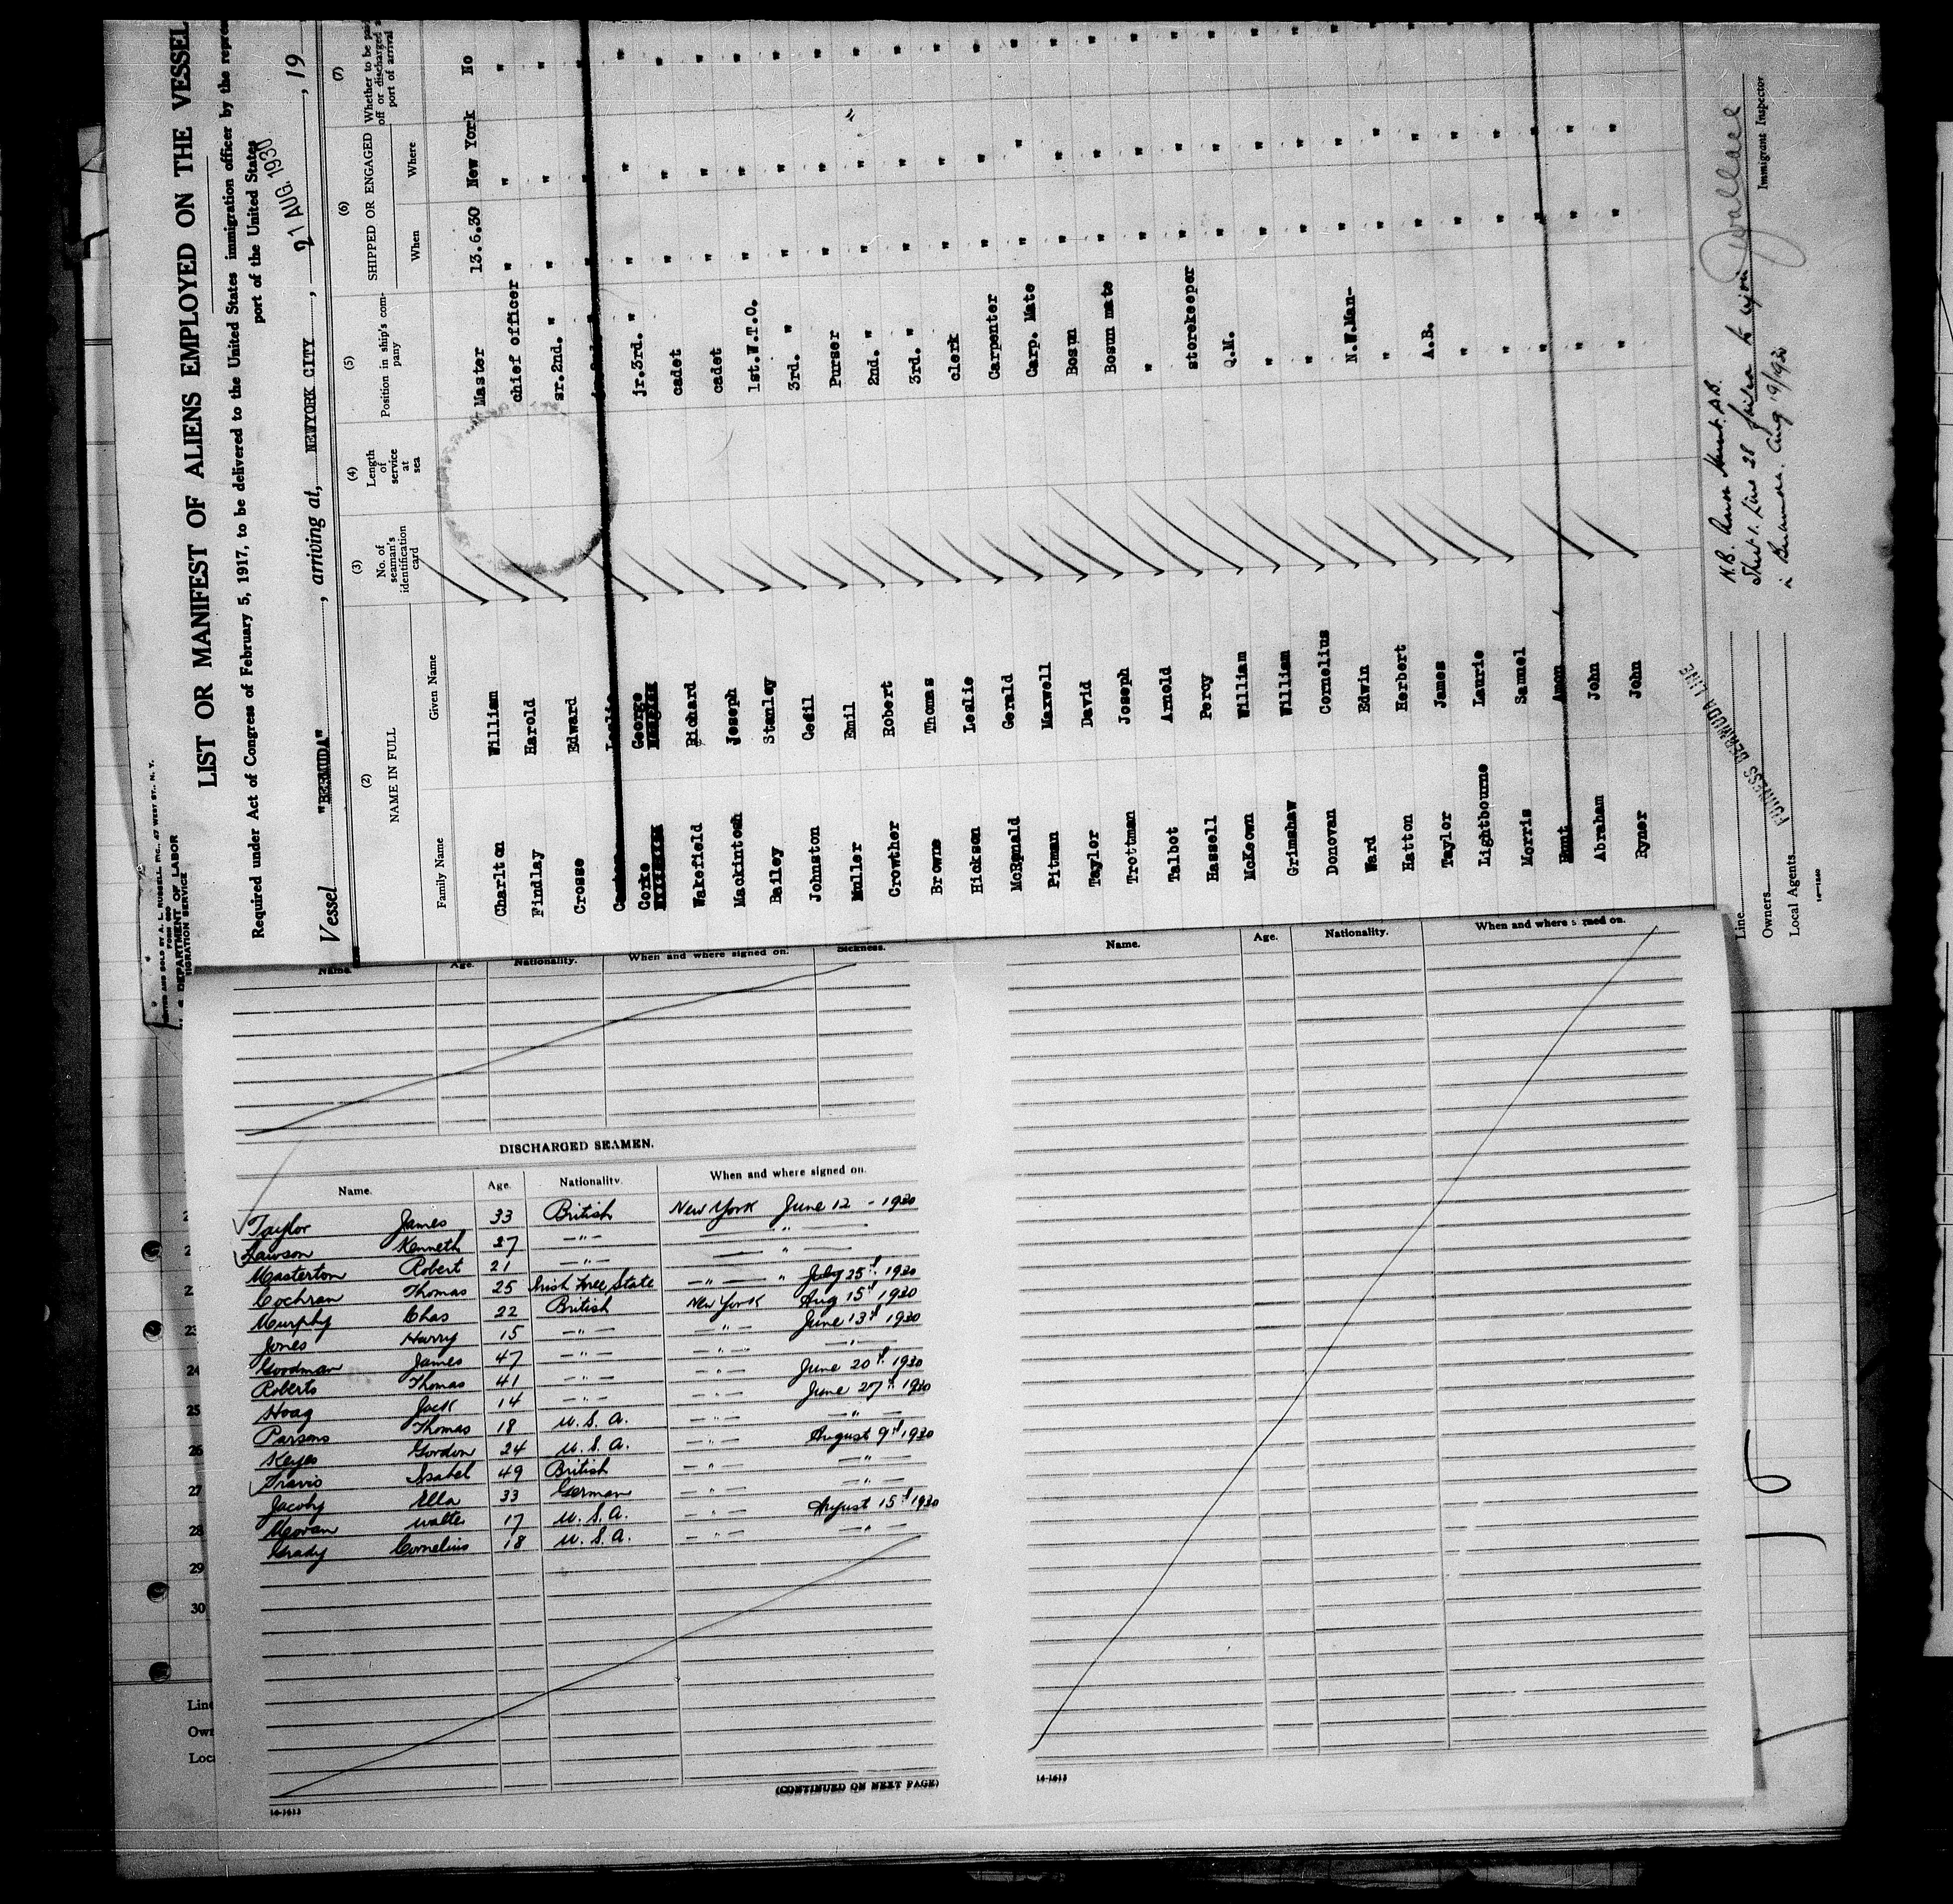 LIST OR MANIFEST OF ALIENS EMPLOYED ON THE VESSEL
Required under Act of Congress of February 5, 1917, to be delivered to the United States immigration officer by the
port of the United States
Vessel "BERMUDA", arriving at, NEWYORK CITY, 21 AUG. 1930, 19
(2) (3) (4) (5) (6) (7)
NAME IN FULL No. of seaman's identification card Length of service at sea Position in ship's company SHIPPED OR ENGAGED Whether to be paid off or discharged at port of arrival
Family Name Given Name When Where
Charlton William Master 13.6.30 New York No
Findlay Harold chief officer " " "
Crosse Edward sr.2nd. " " " "
Leslie
Corke George jr.3rd. " " " "
Wakefield Richard cadet " " "
Mackintosh Joseph cadet " " "
Bailey Stanley 1st.W.T.O. " " "
Johnston Cecil 3rd. " " " "
Muller Emil Purser " " "
Crowther Robert 2nd. " " " "
Browne Thomas 3rd. " " " "
Hickson Leslie clerk " " "
McRonald Gerald Carpenter " " "
Pitman Maxwell Carp. Mate " " "
Taylor David Bosun " " "
Trottman Joseph Bosun mate " " "
Talbot Arnold " " " "
Hassell Percy storekeeper " " "
McKeown William Q.M. " " "
Grimshaw William " " " "
Donovan Cornelius " " " "
Ward Edwin N.W.Man- " " "
Hatton Herbert " " " "
Taylor James A.B. " " "
Lightbourne Laurie " " " "
Morris Samuel " " " "
Hunt Amon " " " "
Abraham John " " " "
Ryner John " " " "
Line
Owners
Local Agents
FURNESS BERMUDA LINE
16-1240
N.B. Amon Hunt. A.B.
Sheet 1. Line 28 failed to rejoin
in Bermuda. Aug 19/1930
Wallace
Immigrant Inspector
U. S. DEPARTMENT OF LABOR
Name. Age. Nationality. When and where signed on. Sickness.
DISCHARGED SEAMEN.
Name. Age. Nationality. When and where signed on.
Taylor James 33 British New York June 12 - 1930
Lawson Kenneth 27 -"- -"-
Masterton Robert 21 -"- "
Cochran Thomas 25 Irish Free State -"- " July 25th 1930
Murphy Chas 22 British New York Aug 15th 1930
Jones Harry 15 -"- -"- June 13th 1930
Goodman James 47 -"- -"- -"-
Roberts Thomas 41 -"- -"- June 20th 1930
Hoag Jack 14 -"- -"- June 27th 1930
Parsons Thomas 18 U.S.A. -"- -"-
Keyes Gordon 24 U.S.A. -"- August 9th 1930
Travis Isabel 49 British -"- -"-
Jacoby Ella 33 German -"- -"-
Moran Walter 17 U.S.A. -"- August 15th 1930
Grady Cornelius 18 U.S.A. -"- -"-
(CONTINUED ON NEXT PAGE)
16-1613
Name. Age. Nationality. When and where signed on.
16-1613
23
24
25
26
27
28
29
30